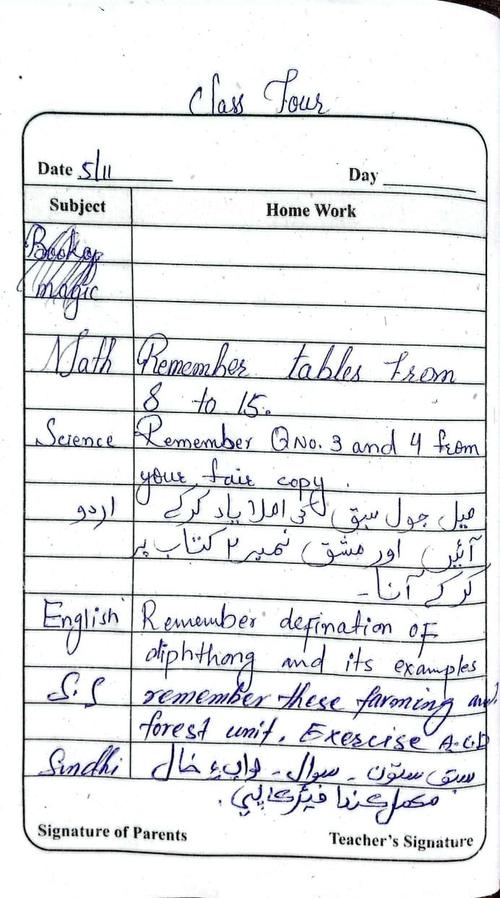 Class Four
Date 5/11 Day
Subject Home Work
Book of
magic
Math Remember tables from
8 to 15.
Science Remember Q No. 3 and 4 from
your fair copy.
اردو میل جول سبق کی املا یاد کرکے
آئیں اور مشق نمبر ۲ کتاب پر
کرکے آنا۔
English Remember defination of
diphthong and its examples
S.S remember these farming and
forest unit. Exercise A.C.D
Sindhi سبق ستون۔ سوال۔ جواب ۽ خال
مڪمل ڪندا فيئر ڪاپي.
Signature of Parents Teacher's Signature